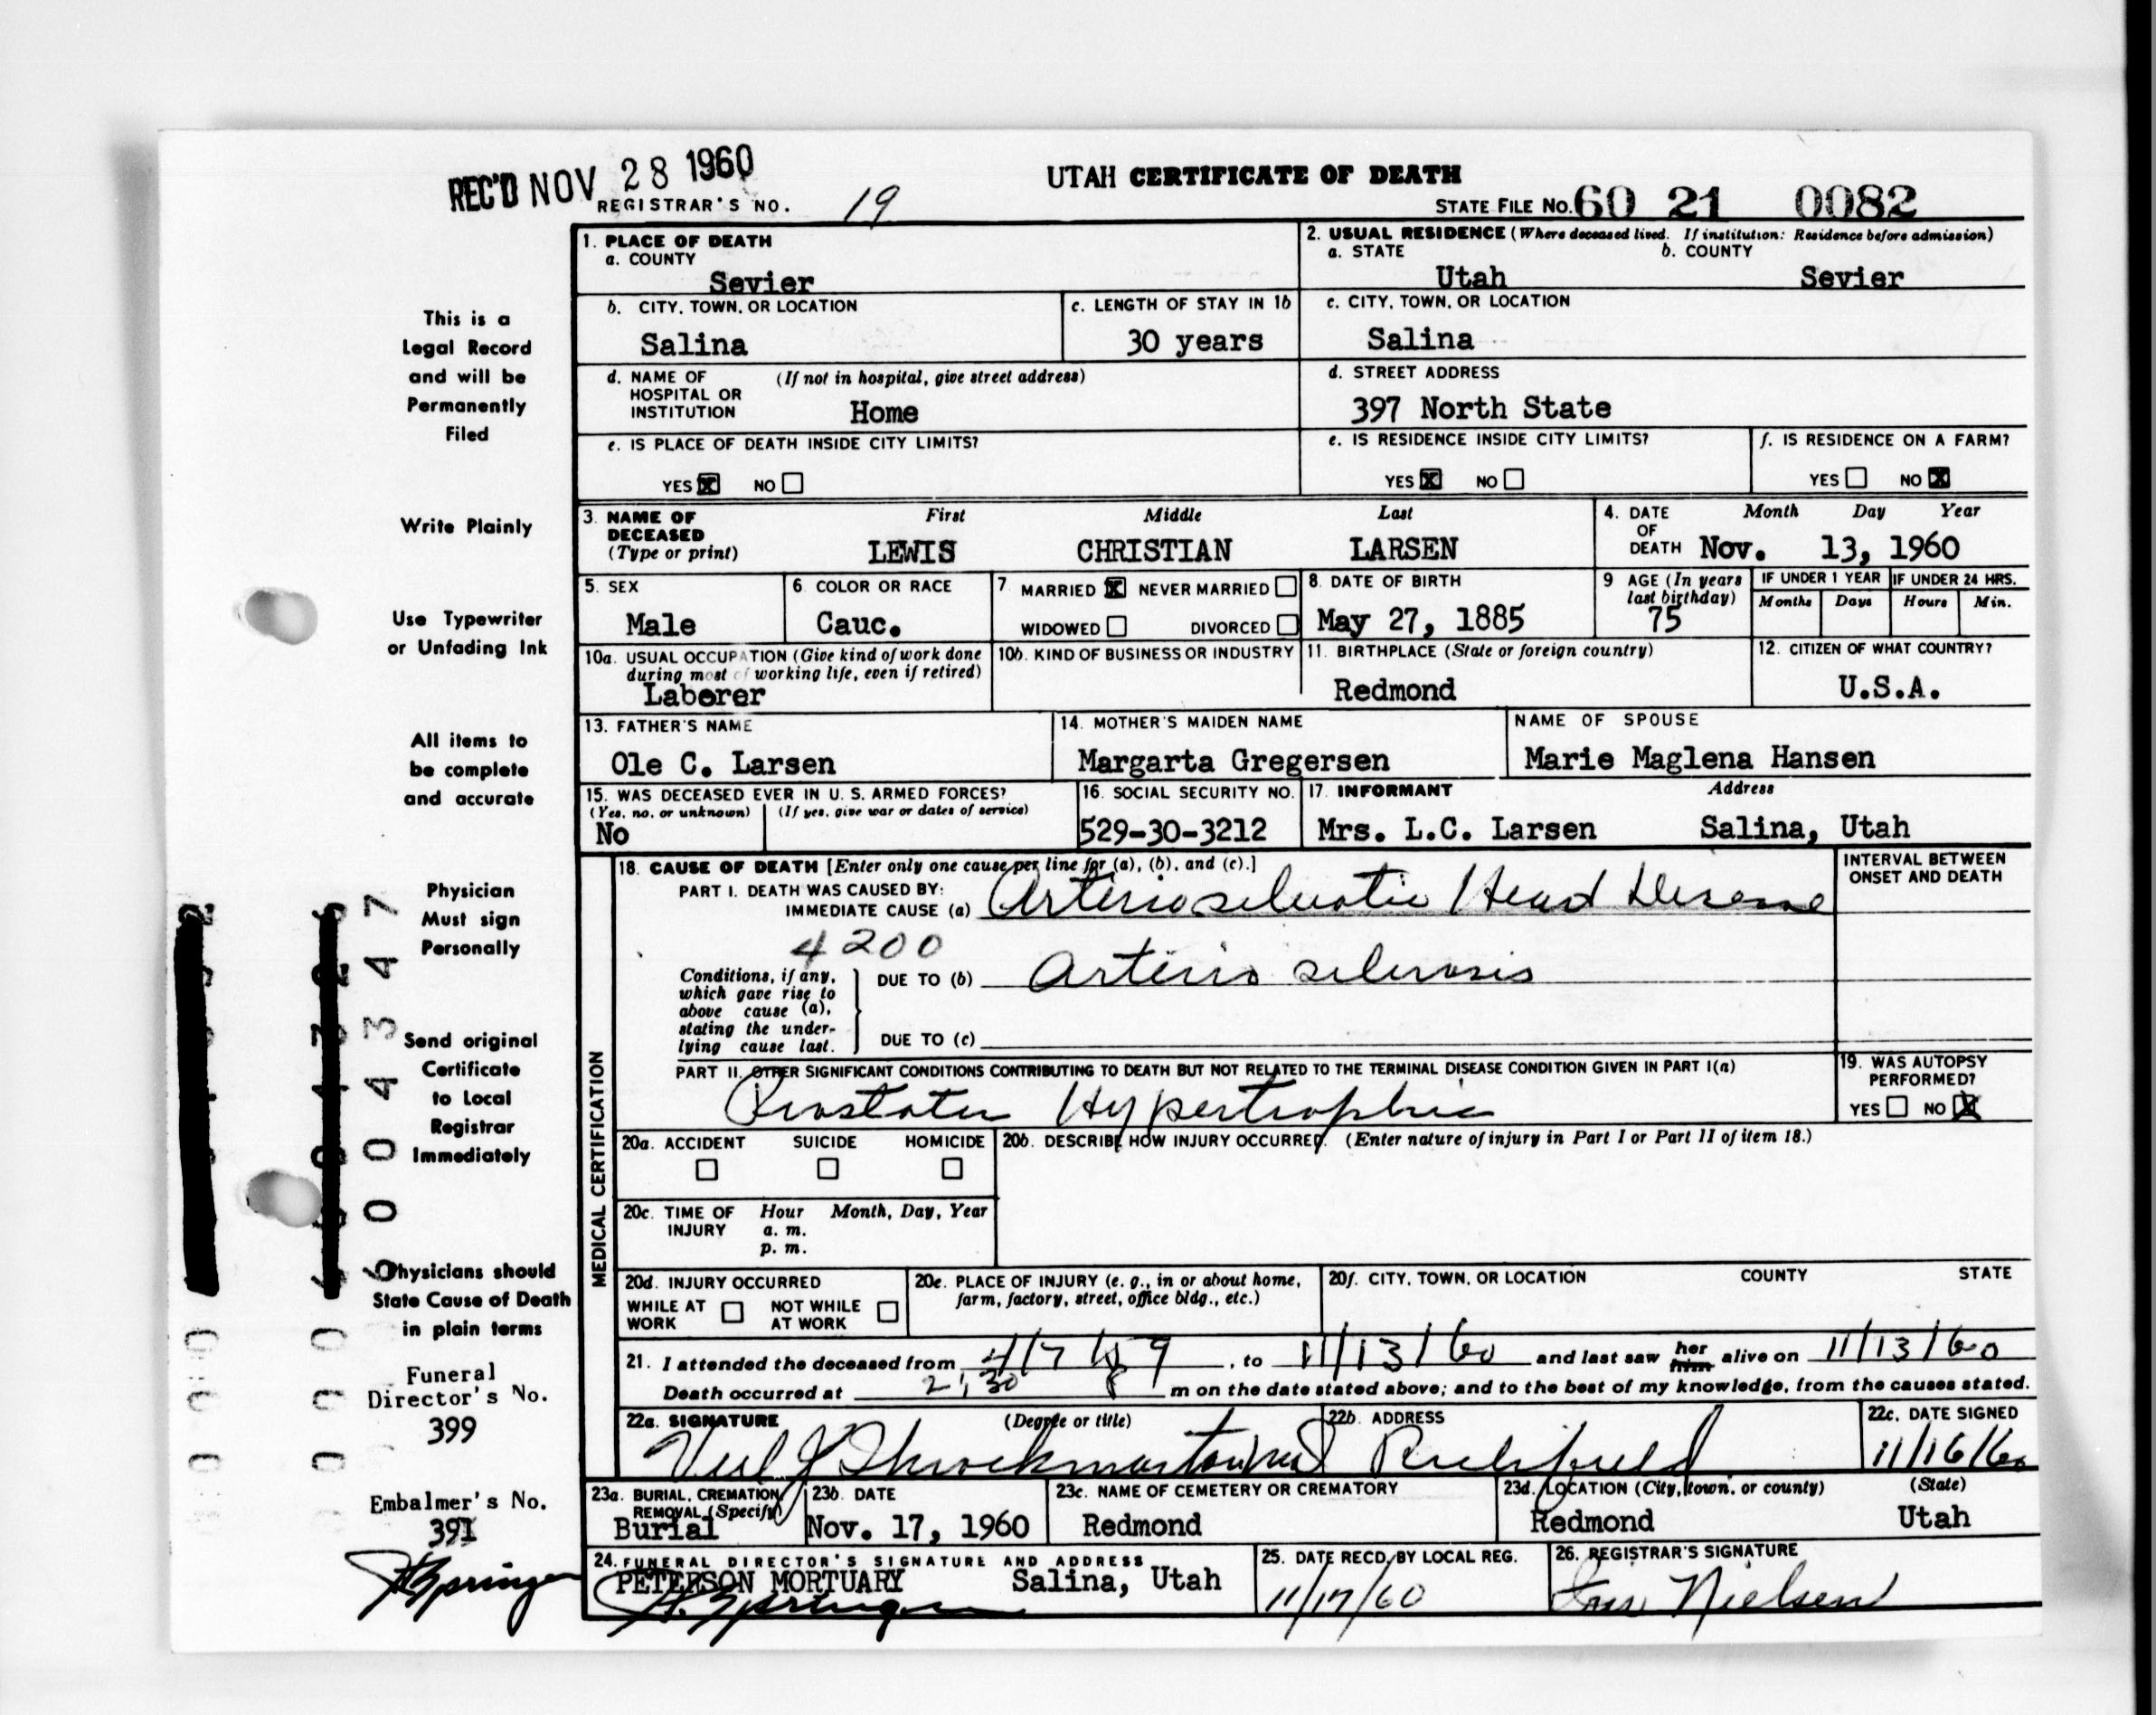 REC'D NOV 28 1960
UTAH CERTIFICATE OF DEATH
REGISTRAR'S NO. 19
STATE FILE No. 60 21 0082
This is a
Legal Record
and will be
Permanently
Filed
Write Plainly
Use Typewriter
or Unfading Ink
All items to
be complete
and accurate
Physician
Must sign
Personally
Send original
Certificate
to Local
Registrar
Immediately
Physicians should
State Cause of Death
in plain terms
Funeral
Director's No.
399
Embalmer's No.
391
H Springer
1. PLACE OF DEATH
a. COUNTY
Sevier
2. USUAL RESIDENCE (Where deceased lived. If institution: Residence before admission)
a. STATE b. COUNTY
Utah Sevier
b. CITY, TOWN, OR LOCATION
Salina
c. LENGTH OF STAY IN 1b
30 years
c. CITY, TOWN, OR LOCATION
Salina
d. NAME OF (If not in hospital, give street address)
HOSPITAL OR
INSTITUTION Home
d. STREET ADDRESS
397 North State
e. IS PLACE OF DEATH INSIDE CITY LIMITS?
YES X NO
e. IS RESIDENCE INSIDE CITY LIMITS?
YES X NO
f. IS RESIDENCE ON A FARM?
YES NO X
3. NAME OF DECEASED
(Type or print)
First Middle Last
LEWIS CHRISTIAN LARSEN
4. DATE OF DEATH
Month Day Year
Nov. 13, 1960
5. SEX
Male
6. COLOR OR RACE
Cauc.
7. MARRIED X NEVER MARRIED
WIDOWED DIVORCED
8. DATE OF BIRTH
May 27, 1885
9 AGE (In years
last birthday)
75
IF UNDER 1 YEAR
Months Days
IF UNDER 24 HRS.
Hours Min.
10a. USUAL OCCUPATION (Give kind of work done
during most of working life, even if retired)
Laborer
10b. KIND OF BUSINESS OR INDUSTRY
11. BIRTHPLACE (State or foreign country)
Redmond
12. CITIZEN OF WHAT COUNTRY?
U.S.A.
13. FATHER'S NAME
Ole C. Larsen
14. MOTHER'S MAIDEN NAME
Margarta Gregersen
NAME OF SPOUSE
Marie Maglena Hansen
15. WAS DECEASED EVER IN U. S. ARMED FORCES?
(Yes, no, or unknown) (If yes, give war or dates of service)
No
16. SOCIAL SECURITY NO.
529-30-3212
17. INFORMANT Address
Mrs. L.C. Larsen Salina, Utah
MEDICAL CERTIFICATION
18. CAUSE OF DEATH [Enter only one cause per line for (a), (b), and (c).]
PART I. DEATH WAS CAUSED BY:
IMMEDIATE CAUSE (a) Arteriosclerotic Heart Disease
INTERVAL BETWEEN
ONSET AND DEATH
4200
Conditions, if any,
which gave rise to
above cause (a),
stating the under-
lying cause last.
DUE TO (b) Arterio sclerosis
DUE TO (c)
PART II. OTHER SIGNIFICANT CONDITIONS CONTRIBUTING TO DEATH BUT NOT RELATED TO THE TERMINAL DISEASE CONDITION GIVEN IN PART I(a)
Prostatic Hypertrophic
19. WAS AUTOPSY
PERFORMED?
YES NO X
20a. ACCIDENT SUICIDE HOMICIDE
20b. DESCRIBE HOW INJURY OCCURRED. (Enter nature of injury in Part I or Part II of item 18.)
20c. TIME OF INJURY
Hour Month, Day, Year
a. m.
p. m.
20d. INJURY OCCURRED
WHILE AT WORK NOT WHILE AT WORK
20e. PLACE OF INJURY (e. g., in or about home,
farm, factory, street, office bldg., etc.)
20f. CITY, TOWN, OR LOCATION COUNTY STATE
21. I attended the deceased from 4/7/59, to 11/13/60 and last saw her him alive on 11/13/60
Death occurred at 2:30 P m on the date stated above; and to the best of my knowledge, from the causes stated.
22a. SIGNATURE (Degree or title)
Throckmorton md
22b. ADDRESS
Richfield
22c. DATE SIGNED
11/16/60
23a. BURIAL, CREMATION,
REMOVAL (Specify)
Burial
23b. DATE
Nov. 17, 1960
23c. NAME OF CEMETERY OR CREMATORY
Redmond
23d. LOCATION (City, town, or county) (State)
Redmond Utah
24. FUNERAL DIRECTOR'S SIGNATURE AND ADDRESS
PETERSON MORTUARY Salina, Utah
H. Springer
25. DATE RECD. BY LOCAL REG.
11/17/60
26. REGISTRAR'S SIGNATURE
Nielsen